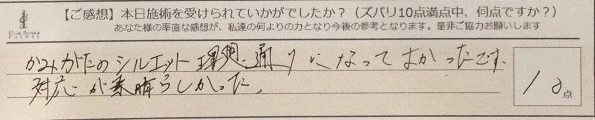 【ご感想】本日施術を受けられていかがでしたか？（ズバリ10点満点中、何点ですか？）
あなた様の率直な感想が、私達の何よりの力となり今後の参考となります。是非ご協力お願いします
かみがたのシルエット理想通りになってよかったです.
対応が素晴らしかった。
10点